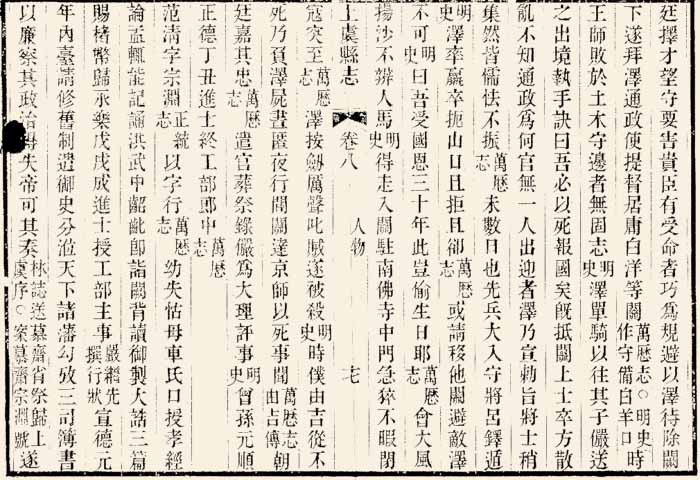 廷擇才望守要害貴臣有受命者巧爲規避以澤待除闕
下遂拜澤通政使提督居庸白洋等關萬歷志○明史時作守備白羊口時
王師敗於土木守邊者無固志明史澤單騎以往其子儼送
之出境執手訣曰吾必以死報國矣旣抵關上士卒方散
亂不知通政爲何官無一人出迎者澤乃宣勅旨將士稍
集然皆懦怯不振萬歷志未數日也先兵大入守將呂鐸遁
明史澤率羸卒扼山口且拒且卻萬歷志或請移他關避敵澤
不可明史曰吾受國恩三十年此豈偷生日耶萬歷志會大風
揚沙不辨人馬明史得走入關駐南佛寺中門急猝不暇閉
上虞縣志 卷八 人物 七
寇突至萬歷志澤按劒厲聲叱賊遂被殺明史時僕由吉從不
死乃負澤屍晝匿夜行間關達京師以死事聞萬歷志由吉傳朝
廷嘉其忠萬歷志遣官葬祭錄儼爲大理評事明史曾孫元順
正德丁丑進士終工部郎中萬歷志
范淸字宗淵正統志以字行萬歷志幼失怙母車氏口授孝經
論孟輒能記誦洪武中齠齔卽詣闕背讀御製大誥三篇
賜楮幣歸永樂戊戌成進士授工部主事嚴繼先撰行狀宣德元
年內臺請修舊制遣御史分涖天下諸藩勾攷三司簿書
以廉察其政治得失帝可其奏林誌送慕齋省祭歸上虞序○案慕齋宗淵號遂